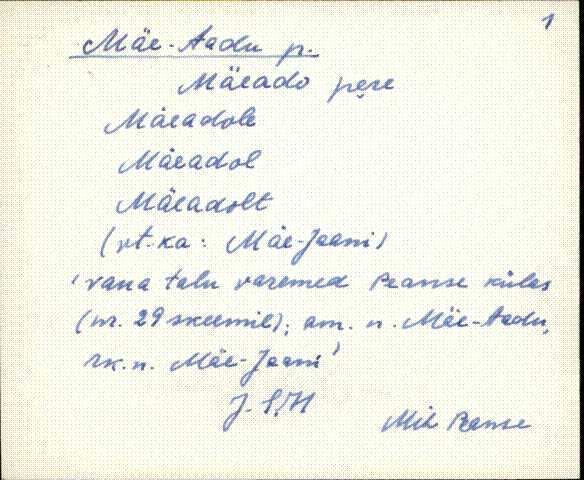 1
Mäe-Aadu p.
Mäeado pere
Mäeadole
Mäeadol
Mäeadolt
(vt. ka: Mäe-Jaani)
'vana talu varemed Peanse külas
(nr. 29 skeemil); am. n. Mäe-Aadu,
rk. n. Mäe-Jaani'
Mih Peanse